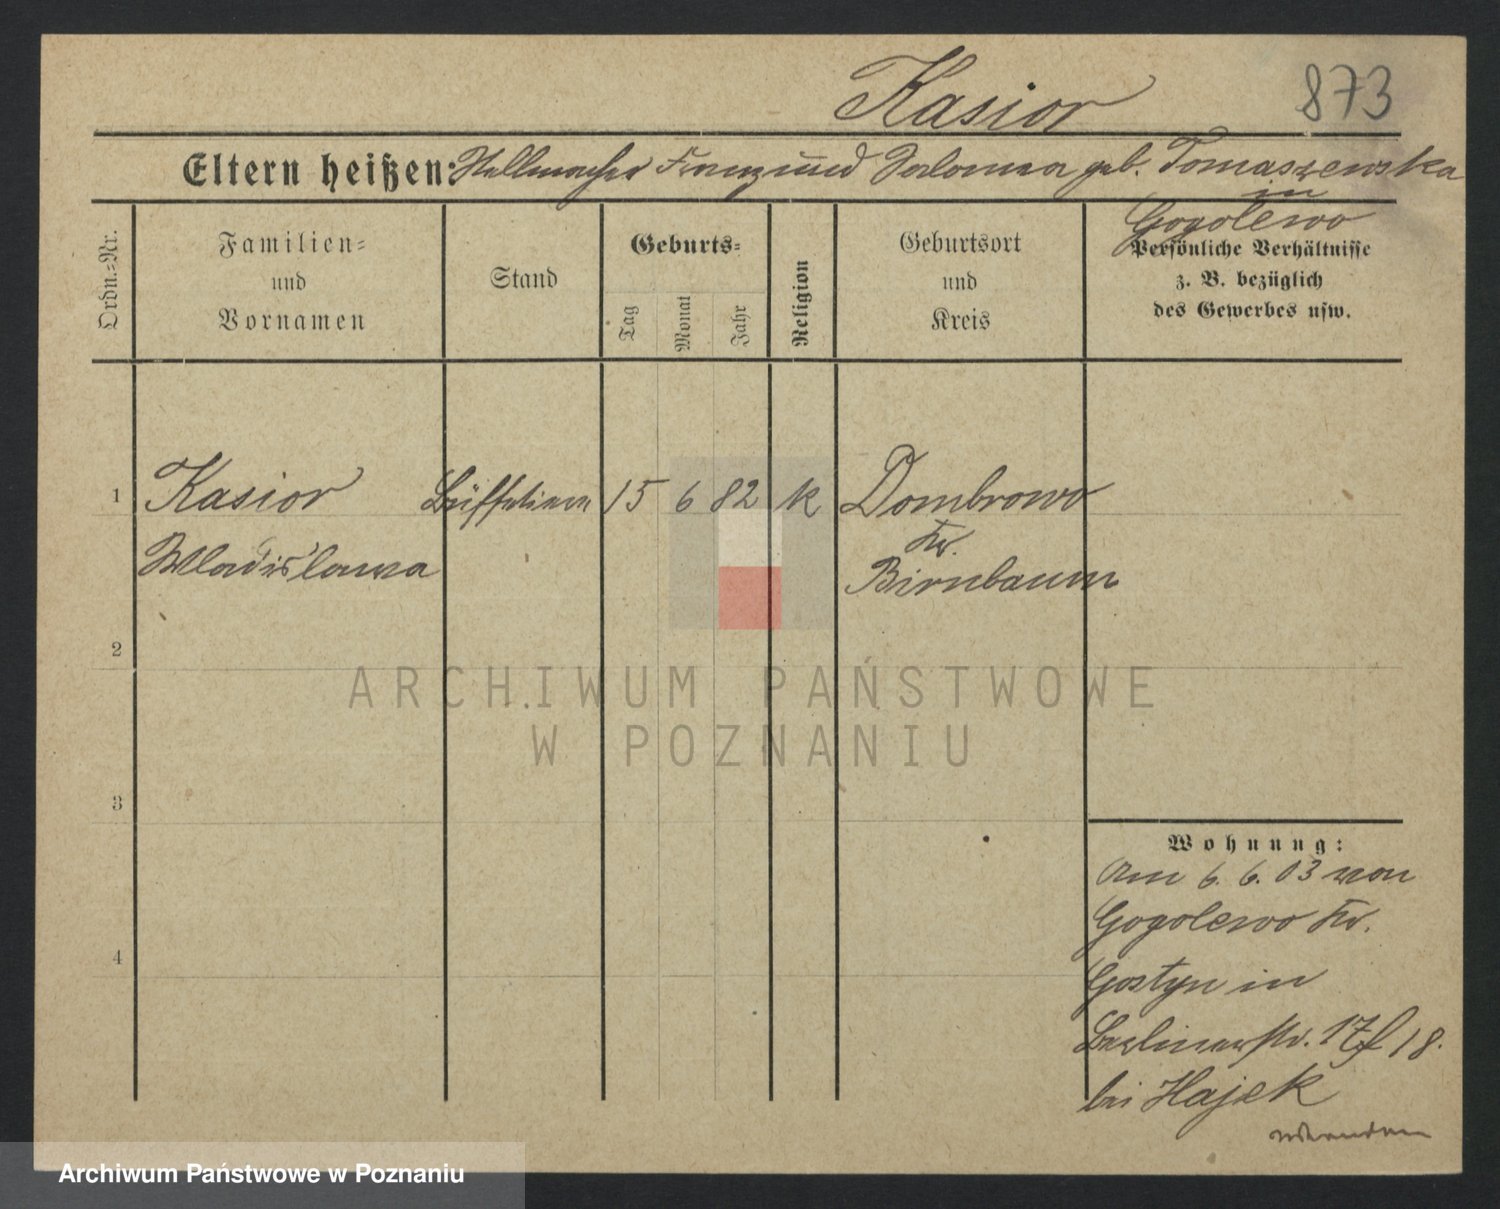 Kasior
873
Eltern heißen: Stellmacher Franz und Salomea geb. Tomaszewska
in
Gogolewo
Ordn.=Nr.
Familien=
und
Vornamen
Stand
Geburts=
Tag
Monat
Jahr
Religion
Geburtsort
und
Kreis
Persönliche Verhältnisse
z. B. bezüglich
des Gewerbes usw.
1
Kasior
Wladislawa
15 6 82 k
Dombrowo
Kr.
Birnbaum
2
3
4
ARCHIWUM PAŃSTWOWE
W POZNANIU
Wohnung:
Am 6. 6. 03 von
Gogolewo Kr.
Gostyn in
Berlinerstr. 17/18.
bei Hajek
Archiwum Państwowe w Poznaniu